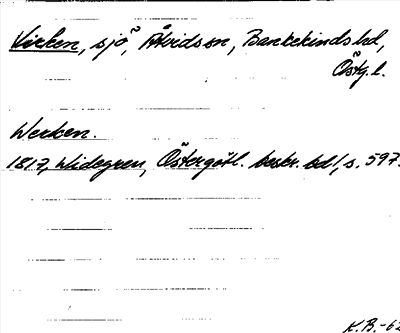 Virken, sjö, Åtvids sn, Bankekinds hd,
Östg. l.
Werken.
1817, Widegren, Östergötl. beskr. bd 1, s. 597.
K.B. -62